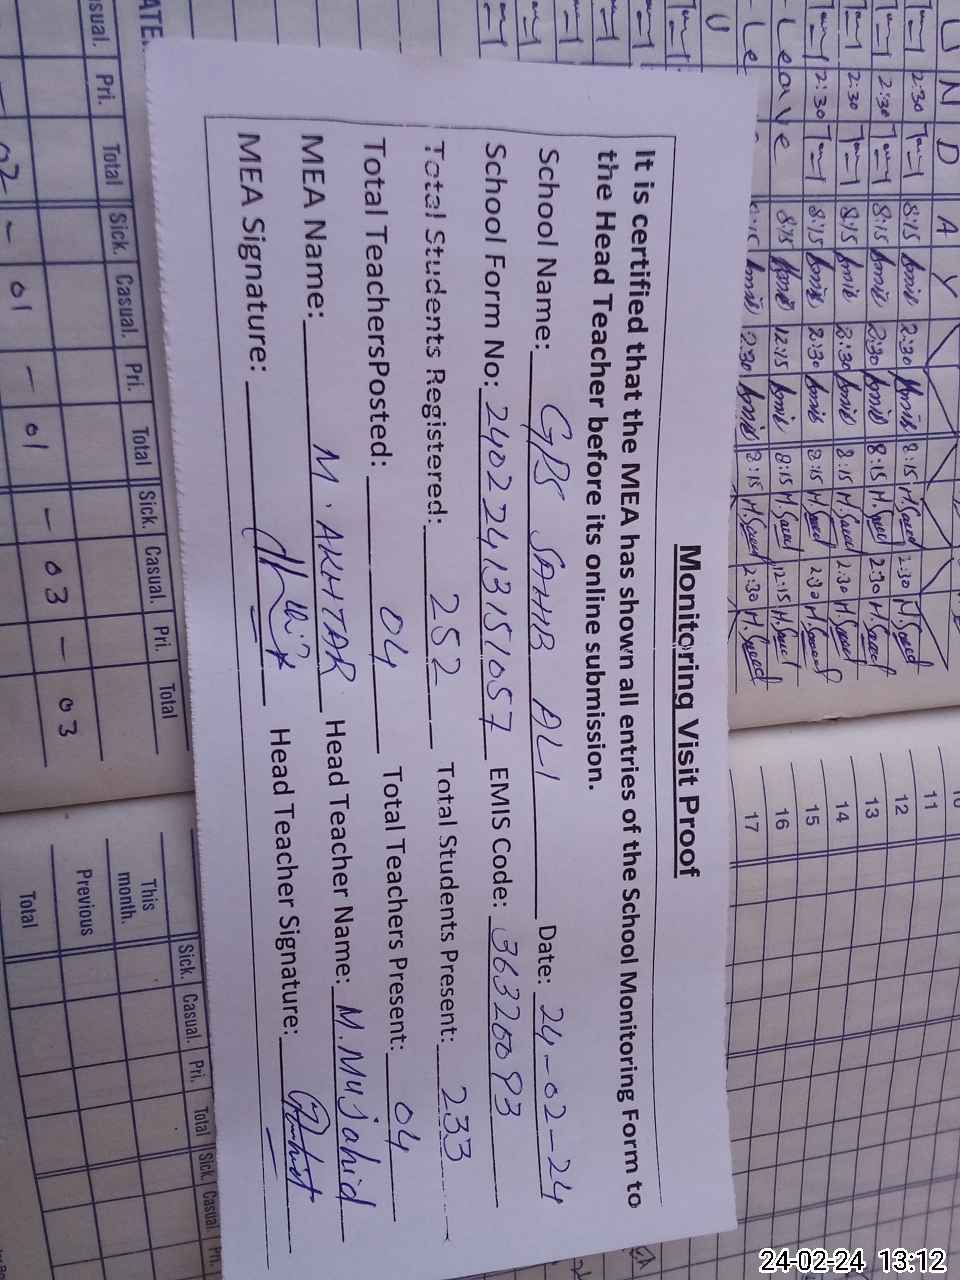 Monitoring Visit Proof
It is certified that the MEA has shown all entries of the School Monitoring Form to
the Head Teacher before its online submission.
School Name: GPS SAHIB ALI Date: 24-02-24
School Form No: 24022413151057 EMIS Code: 36326093
Total Students Registered: 252 Total Students Present: 233
Total TeachersPosted: 04 Total Teachers Present: 04
MEA Name: M. AKHTAR Head Teacher Name: M. Mujahid
MEA Signature: Head Teacher Signature:
U N D A Y
2:30 8:15 2:30 8:15 M. Saeed 2:30 M. Saeed
2:30 8:15 2:30 8:15 M. Saeed 2:30 M. Saeed
2:30 8:15 2:30 8:15 M. Saeed 2:30 M. Saeed
2:30 8:15 2:30 8:15 M. Saeed 2:30 M. Saeed
Leave 8:15 12:15 8:15 M. Saeed 12:15 M. Saeed
Le 8:15 2:30 8:15 M. Saeed 2:30 M. Saeed
11
12
13
14
15
16
17
Pri. Total Sick. Casual. Pri. Total Sick. Casual. Pri. Total
02 - 01 - 01 - 03 - 03
Sick. Casual. Pri. Total Sick. Casual. Pri.
This
month.
Previous
Total
24-02-24 13:12